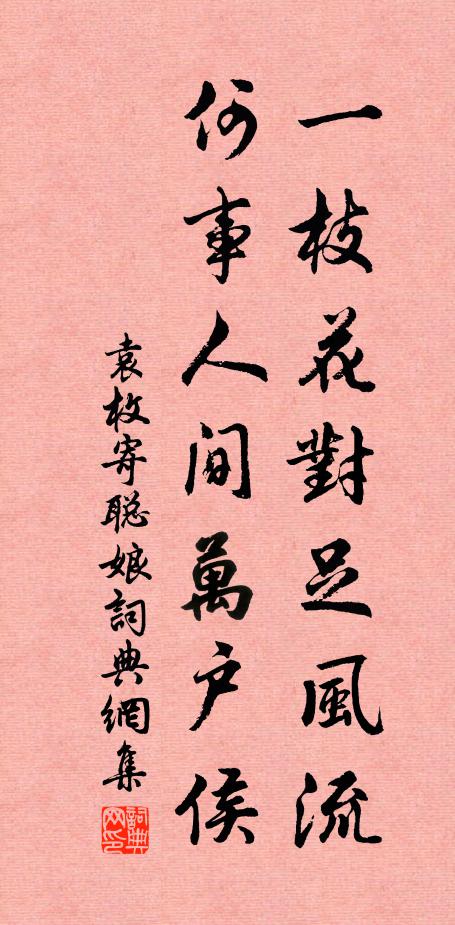 一枝花對足風流
何事人間萬户侯
袁枚寄聰娘詞典網集
詞典网印